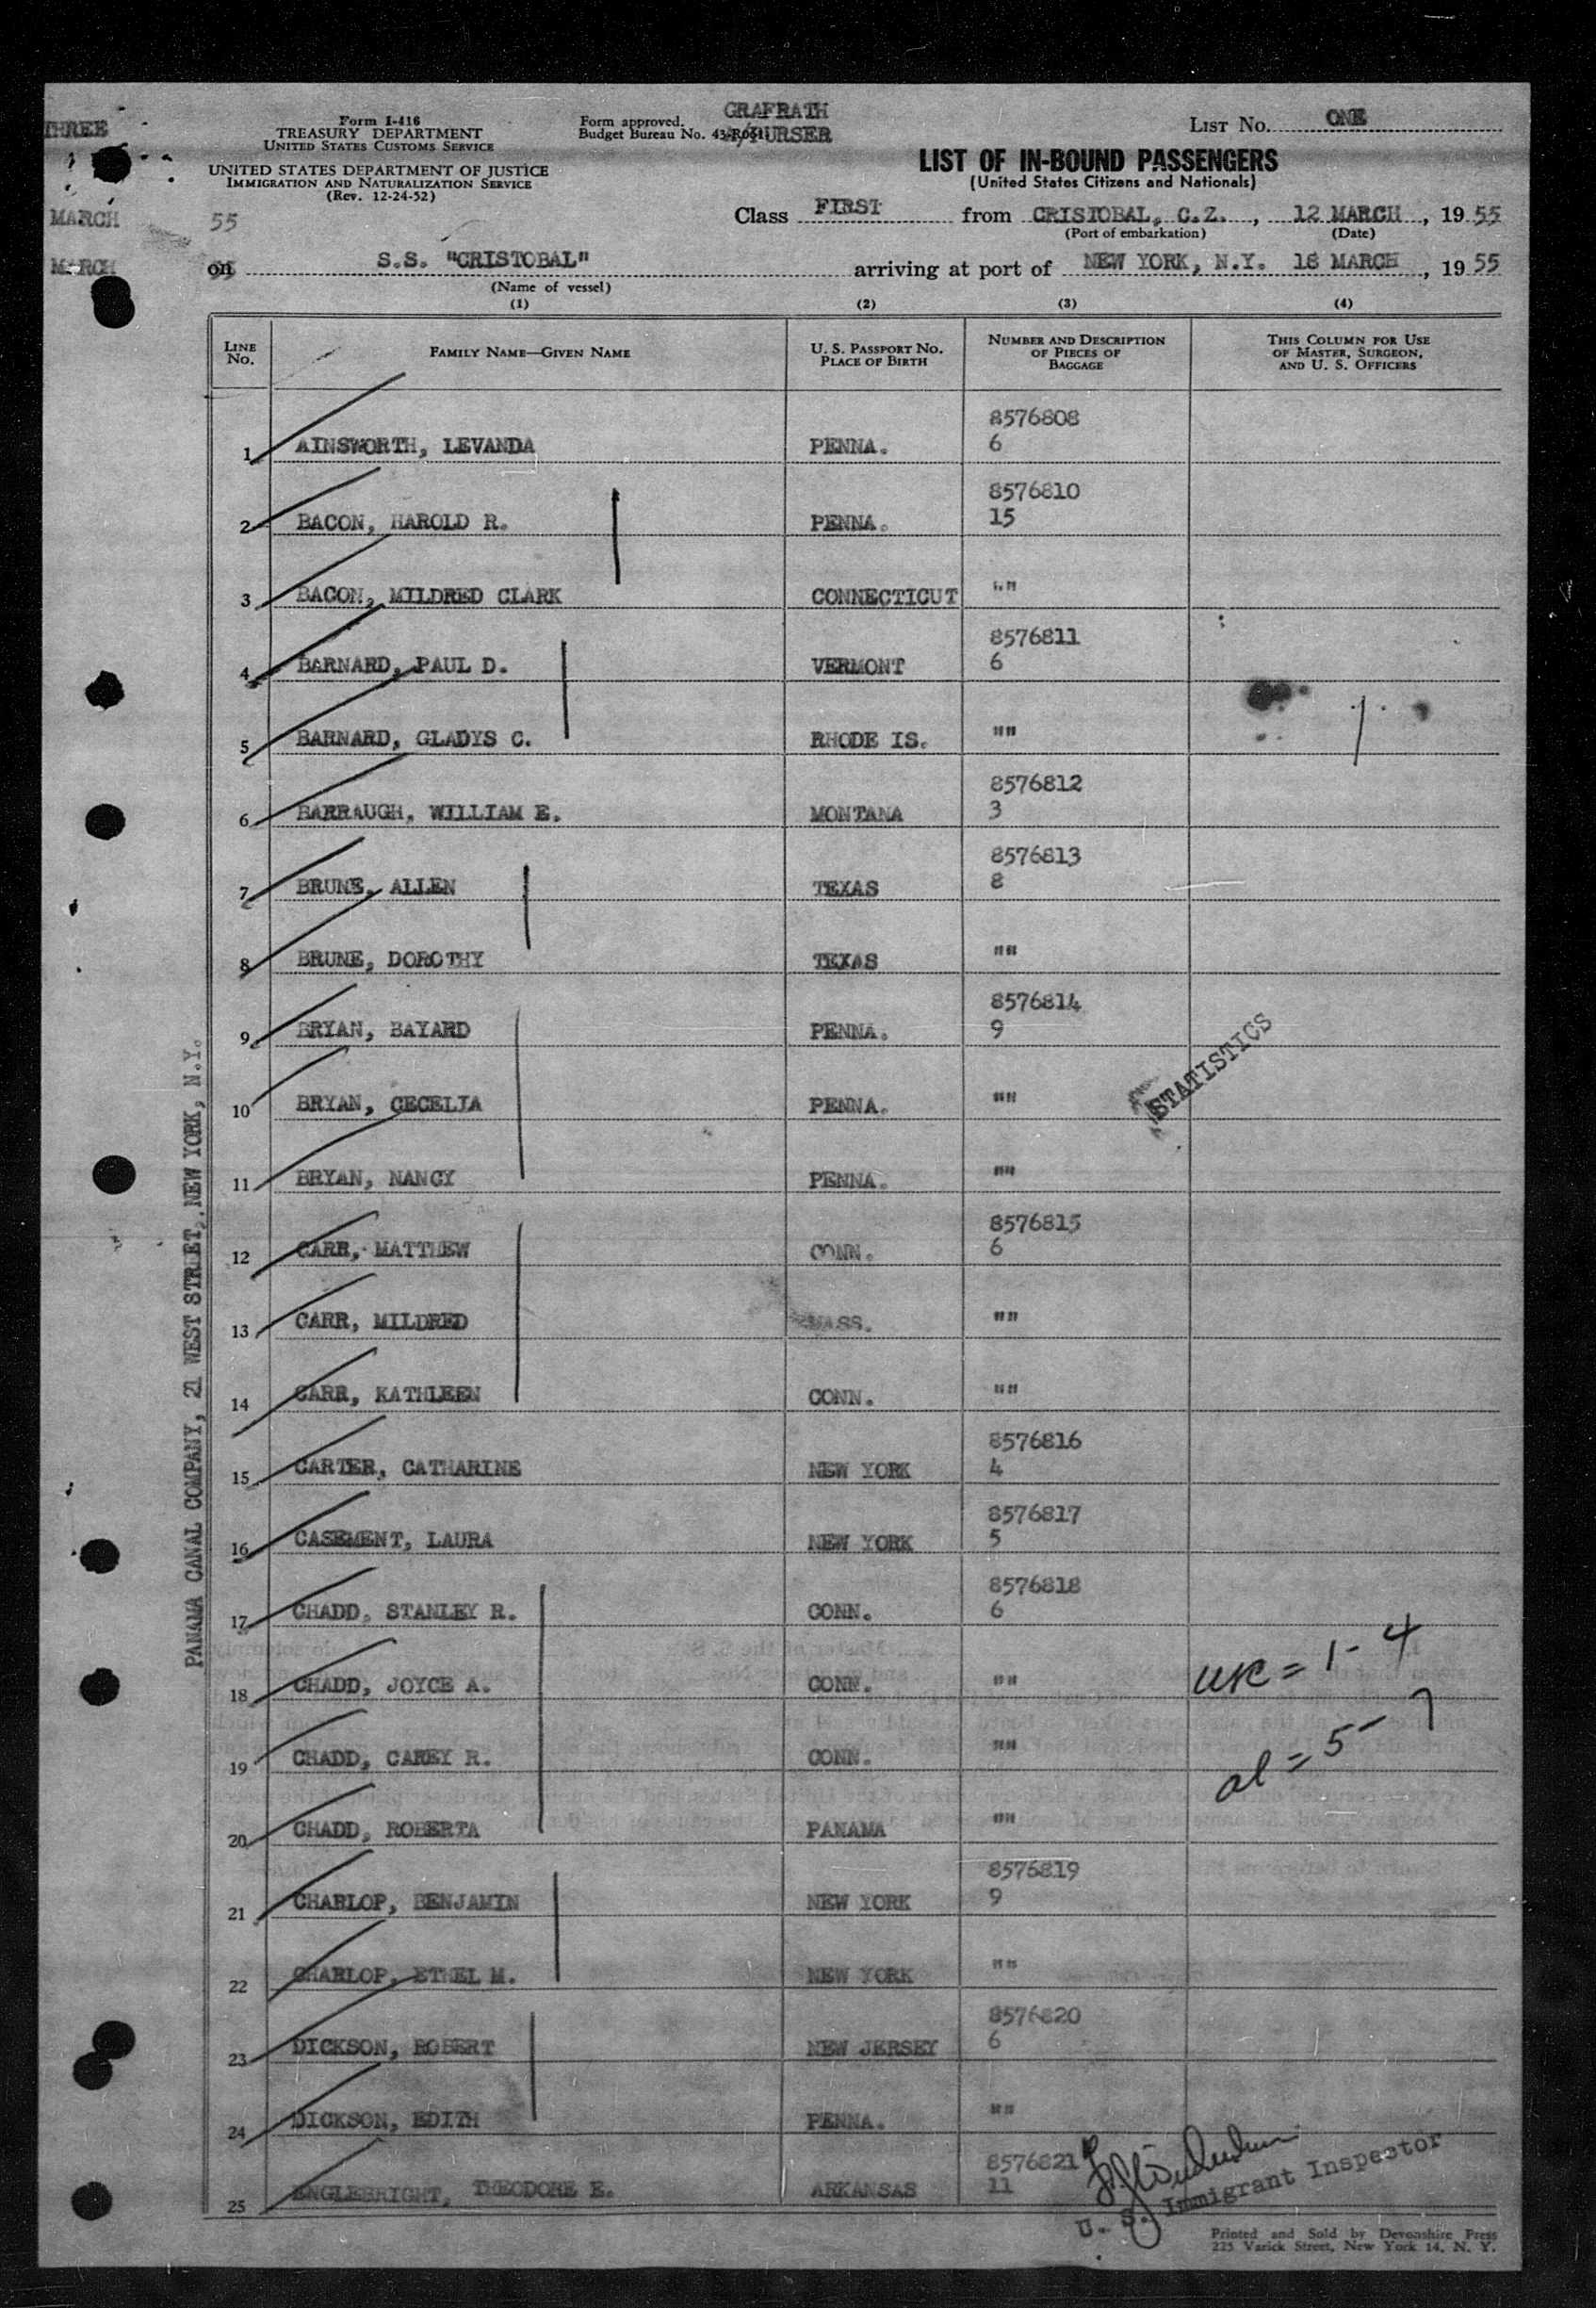 THREE
MARCH 55
MARCH
GRAFRATH
A/PURSER
Form I-416
TREASURY DEPARTMENT
UNITED STATES CUSTOMS SERVICE
UNITED STATES DEPARTMENT OF JUSTICE
IMMIGRATION AND NATURALIZATION SERVICE
(Rev. 12-24-52)
Form approved.
Budget Bureau No.
LIST No. ONE
LIST OF IN-BOUND PASSENGERS
(United States Citizens and Nationals)
Class FIRST from CRISTOBAL, C.Z., 12 MARCH, 1955
(Port of embarkation) (Date)
on S.S. "CRISTOBAL" arriving at port of NEW YORK, N.Y. 18 MARCH, 1955
(Name of vessel)
(1) (2) (3) (4)
LINE No. FAMILY NAME—GIVEN NAME U. S. PASSPORT NO. PLACE OF BIRTH NUMBER AND DESCRIPTION OF PIECES OF BAGGAGE THIS COLUMN FOR USE OF MASTER, SURGEON, AND U. S. OFFICERS
8576808
1 AINSWORTH, LEVANDA PENNA. 6
8576810
2 BACON, HAROLD R. PENNA. 15
3 BACON, MILDRED CLARK CONNECTICUT ""
8576811
4 BARNARD, PAUL D. VERMONT 6
5 BARNARD, GLADYS C. RHODE IS. ""
8576812
6 BARRAUGH, WILLIAM E. MONTANA 3
8576813
7 BRUNE, ALLEN TEXAS 8
8 BRUNE, DOROTHY TEXAS ""
8576814
9 BRYAN, BAYARD PENNA. 9
10 BRYAN, CECELIA PENNA. ""
STATISTICS
11 BRYAN, NANCY PENNA. ""
8576815
12 CARR, MATTHEW CONN. 6
13 CARR, MILDRED MASS. ""
14 CARR, KATHLEEN CONN. ""
8576816
15 CARTER, CATHARINE NEW YORK 4
8576817
16 CASEMENT, LAURA NEW YORK 5
8576818
17 CHADD, STANLEY R. CONN. 6
18 CHADD, JOYCE A. CONN. "" usc = 1-4
19 CHADD, CAREY R. CONN. "" al = 5-7
20 CHADD, ROBERTA PANAMA ""
8576819
21 CHARLOP, BENJAMIN NEW YORK 9
22 CHARLOP, ETHEL M. NEW YORK ""
8576820
23 DICKSON, ROBERT NEW JERSEY 6
24 DICKSON, EDITH PENNA. ""
8576821
25 ENGLEBRIGHT, THEODORE E. ARKANSAS 11
U. S. Immigrant Inspector
Printed and Sold by Devonshire Press
225 Varick Street, New York 14, N. Y.
PANAMA CANAL COMPANY, 21 WEST STREET, NEW YORK, N.Y.